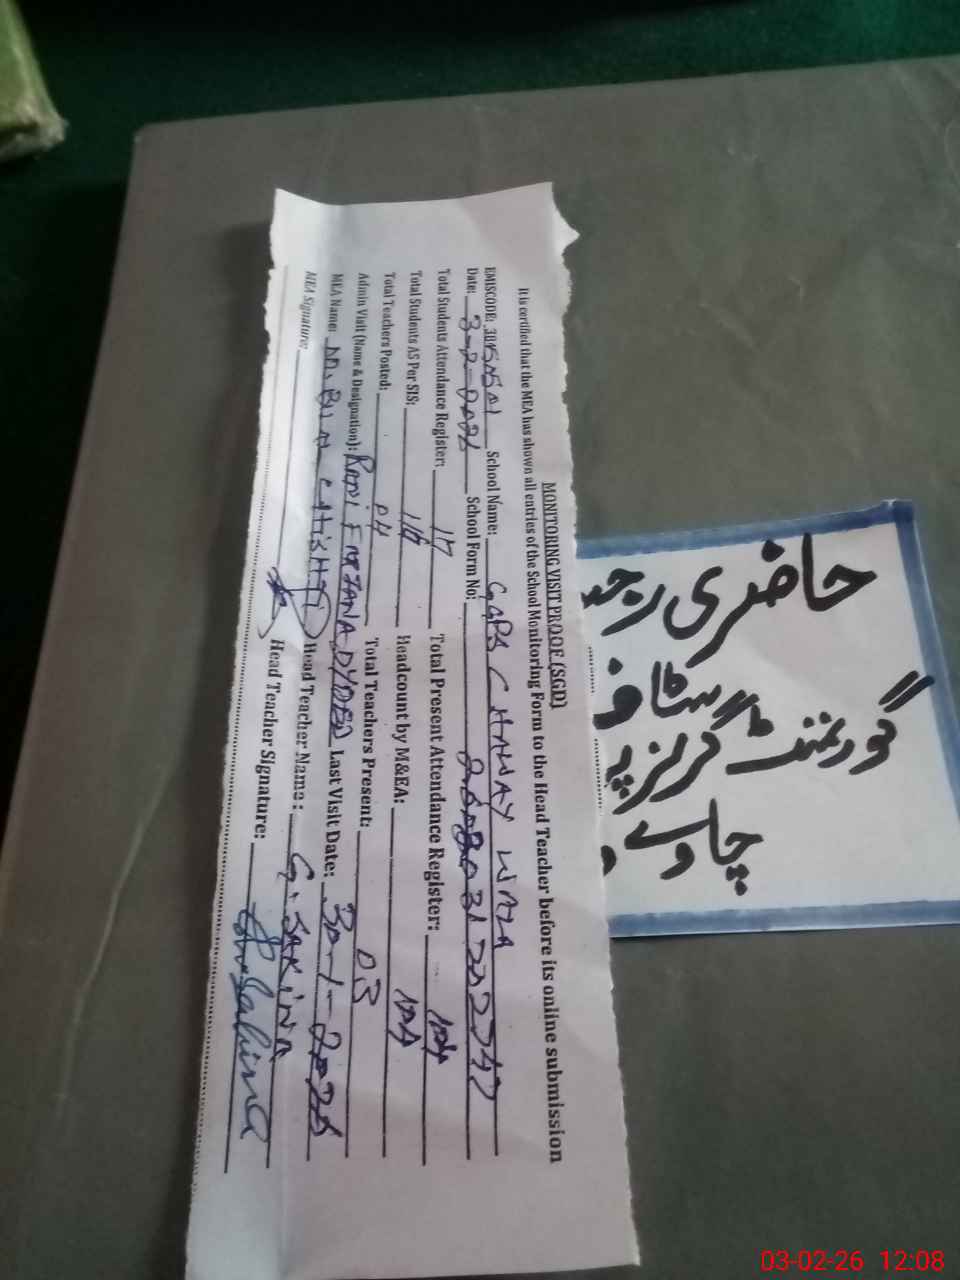 MONITORING VISIT PROOF (SGD)
It is certified that the MEA has shown all entries of the School Monitoring Form to the Head Teacher before its online submission
EMISCODE: School Name: GGPS CHAWAY WALA
Date: 3-2-2026 School Form No:
Total Students Attendance Register: Total Present Attendance Register: 104
Total Students AS Per SIS: 116 Headcount by M&EA: 104
Total Teachers Posted: 04 Total Teachers Present: 03
Admin Visit (Name & Designation): RANI FARZANA DYDEO Last Visit Date: 30-1-2026
MEA Name: CHISHTI Head Teacher Name: G. SAKINA
MEA Signature: Head Teacher Signature: Sakina
حاضری رجس
سٹاف
گورنمنٹ گرلز پر
چاوے و
03-02-26 12:08